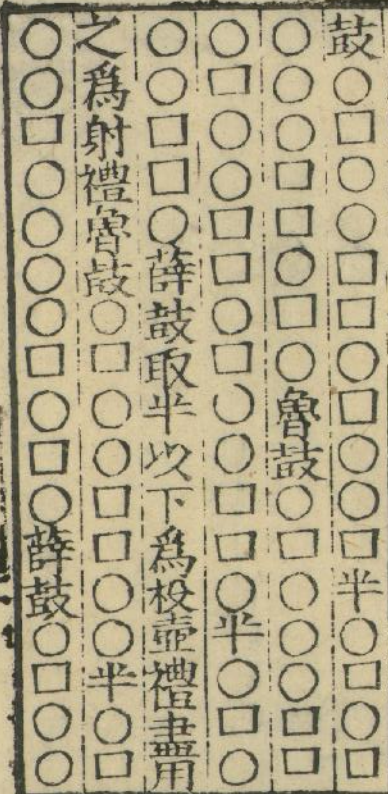 鼓○□○○□□○□○○□半○□○□
○○○□□○□○魯鼓○□○○○□□
○□○○□□○□○○□□○半○□○
○○□□○薛鼓取半以下爲投壺禮盡用
之爲射禮魯鼓○□○○□□○○半○□
○○□○○○○□○□○薛鼓○□○○